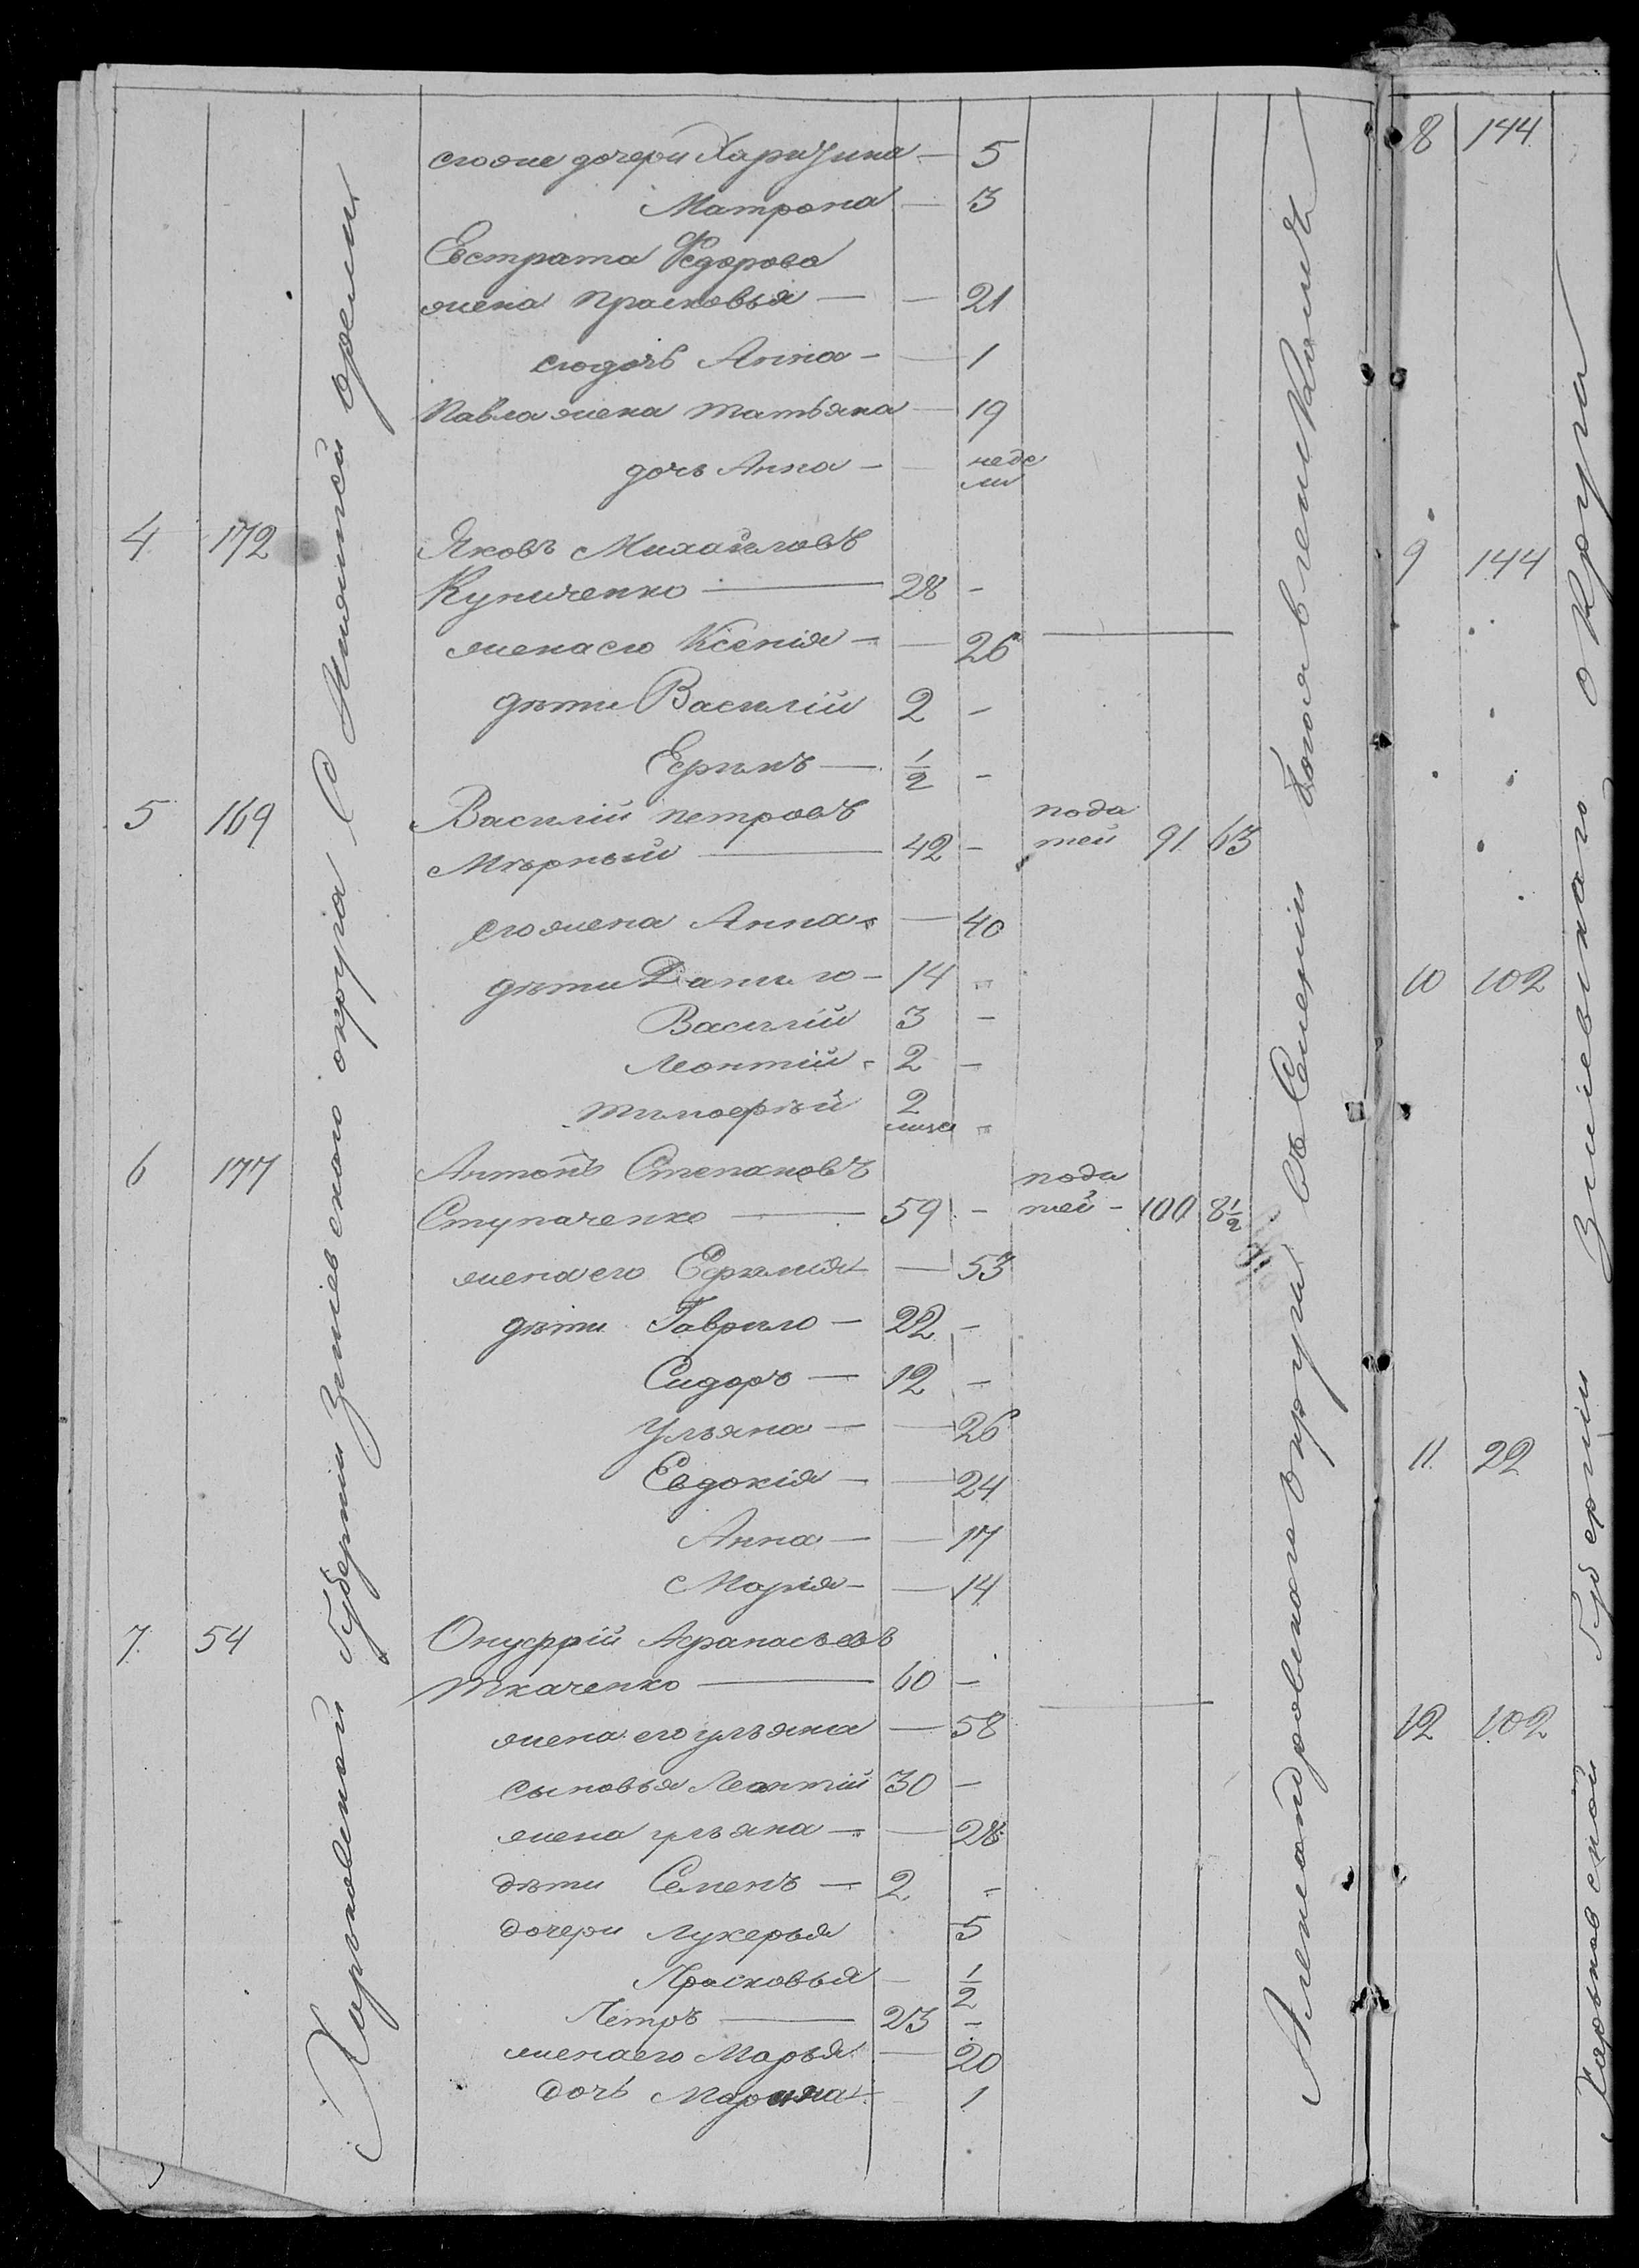 его же дочери Харитина — 5
Матрона — 3
Евстрата Федорова
жена Прасковья — — 21
его дочь Анна — — 1
Павла жена Татьяна — 19
дочь Анна — неде
ли
4 172 Яковъ Михайловъ
Куличенко — 28 -
жена его Ксенія — — 26
дѣти Василій 2 -
Ефимъ — 1/2 -
5 169 Василій Петровъ пода
Мѣрный — 42 - тей 91 63
его жена Анна — 40
дѣти Данило - 14 -
Василій 3 -
Леонтій - 2 -
Тимофѣй 2
-
6 177 Антонъ Степановъ пода
Ступаченко — 59 - тей - 100 8 1/2
жена его Ефимія — 53
дѣти Гаврило — 22 -
Сидоръ — 12 -
Ульяна — — 26
Евдокія — — 24
Анна — — 17
Марія - — 14
7. 54 Онуфрій Афанасьевъ
Ткаченко — 60 -
жена его Ульяна — 58
сыновья Леонтій 30 -
жена Ульяна — — 28
дѣти Семенъ — 2 -
дочери Лукерья 5
Прасковья — 1/2
Петръ — 23 -
жена его Марья — 20
дочь Марина 1
Харьковской губерніи Зміевского округа С
Александровскаго округа въ Селеніи
8 144
9 144
10 102
11 22
12 102
Харьковской губерніи Зміевскаго округа